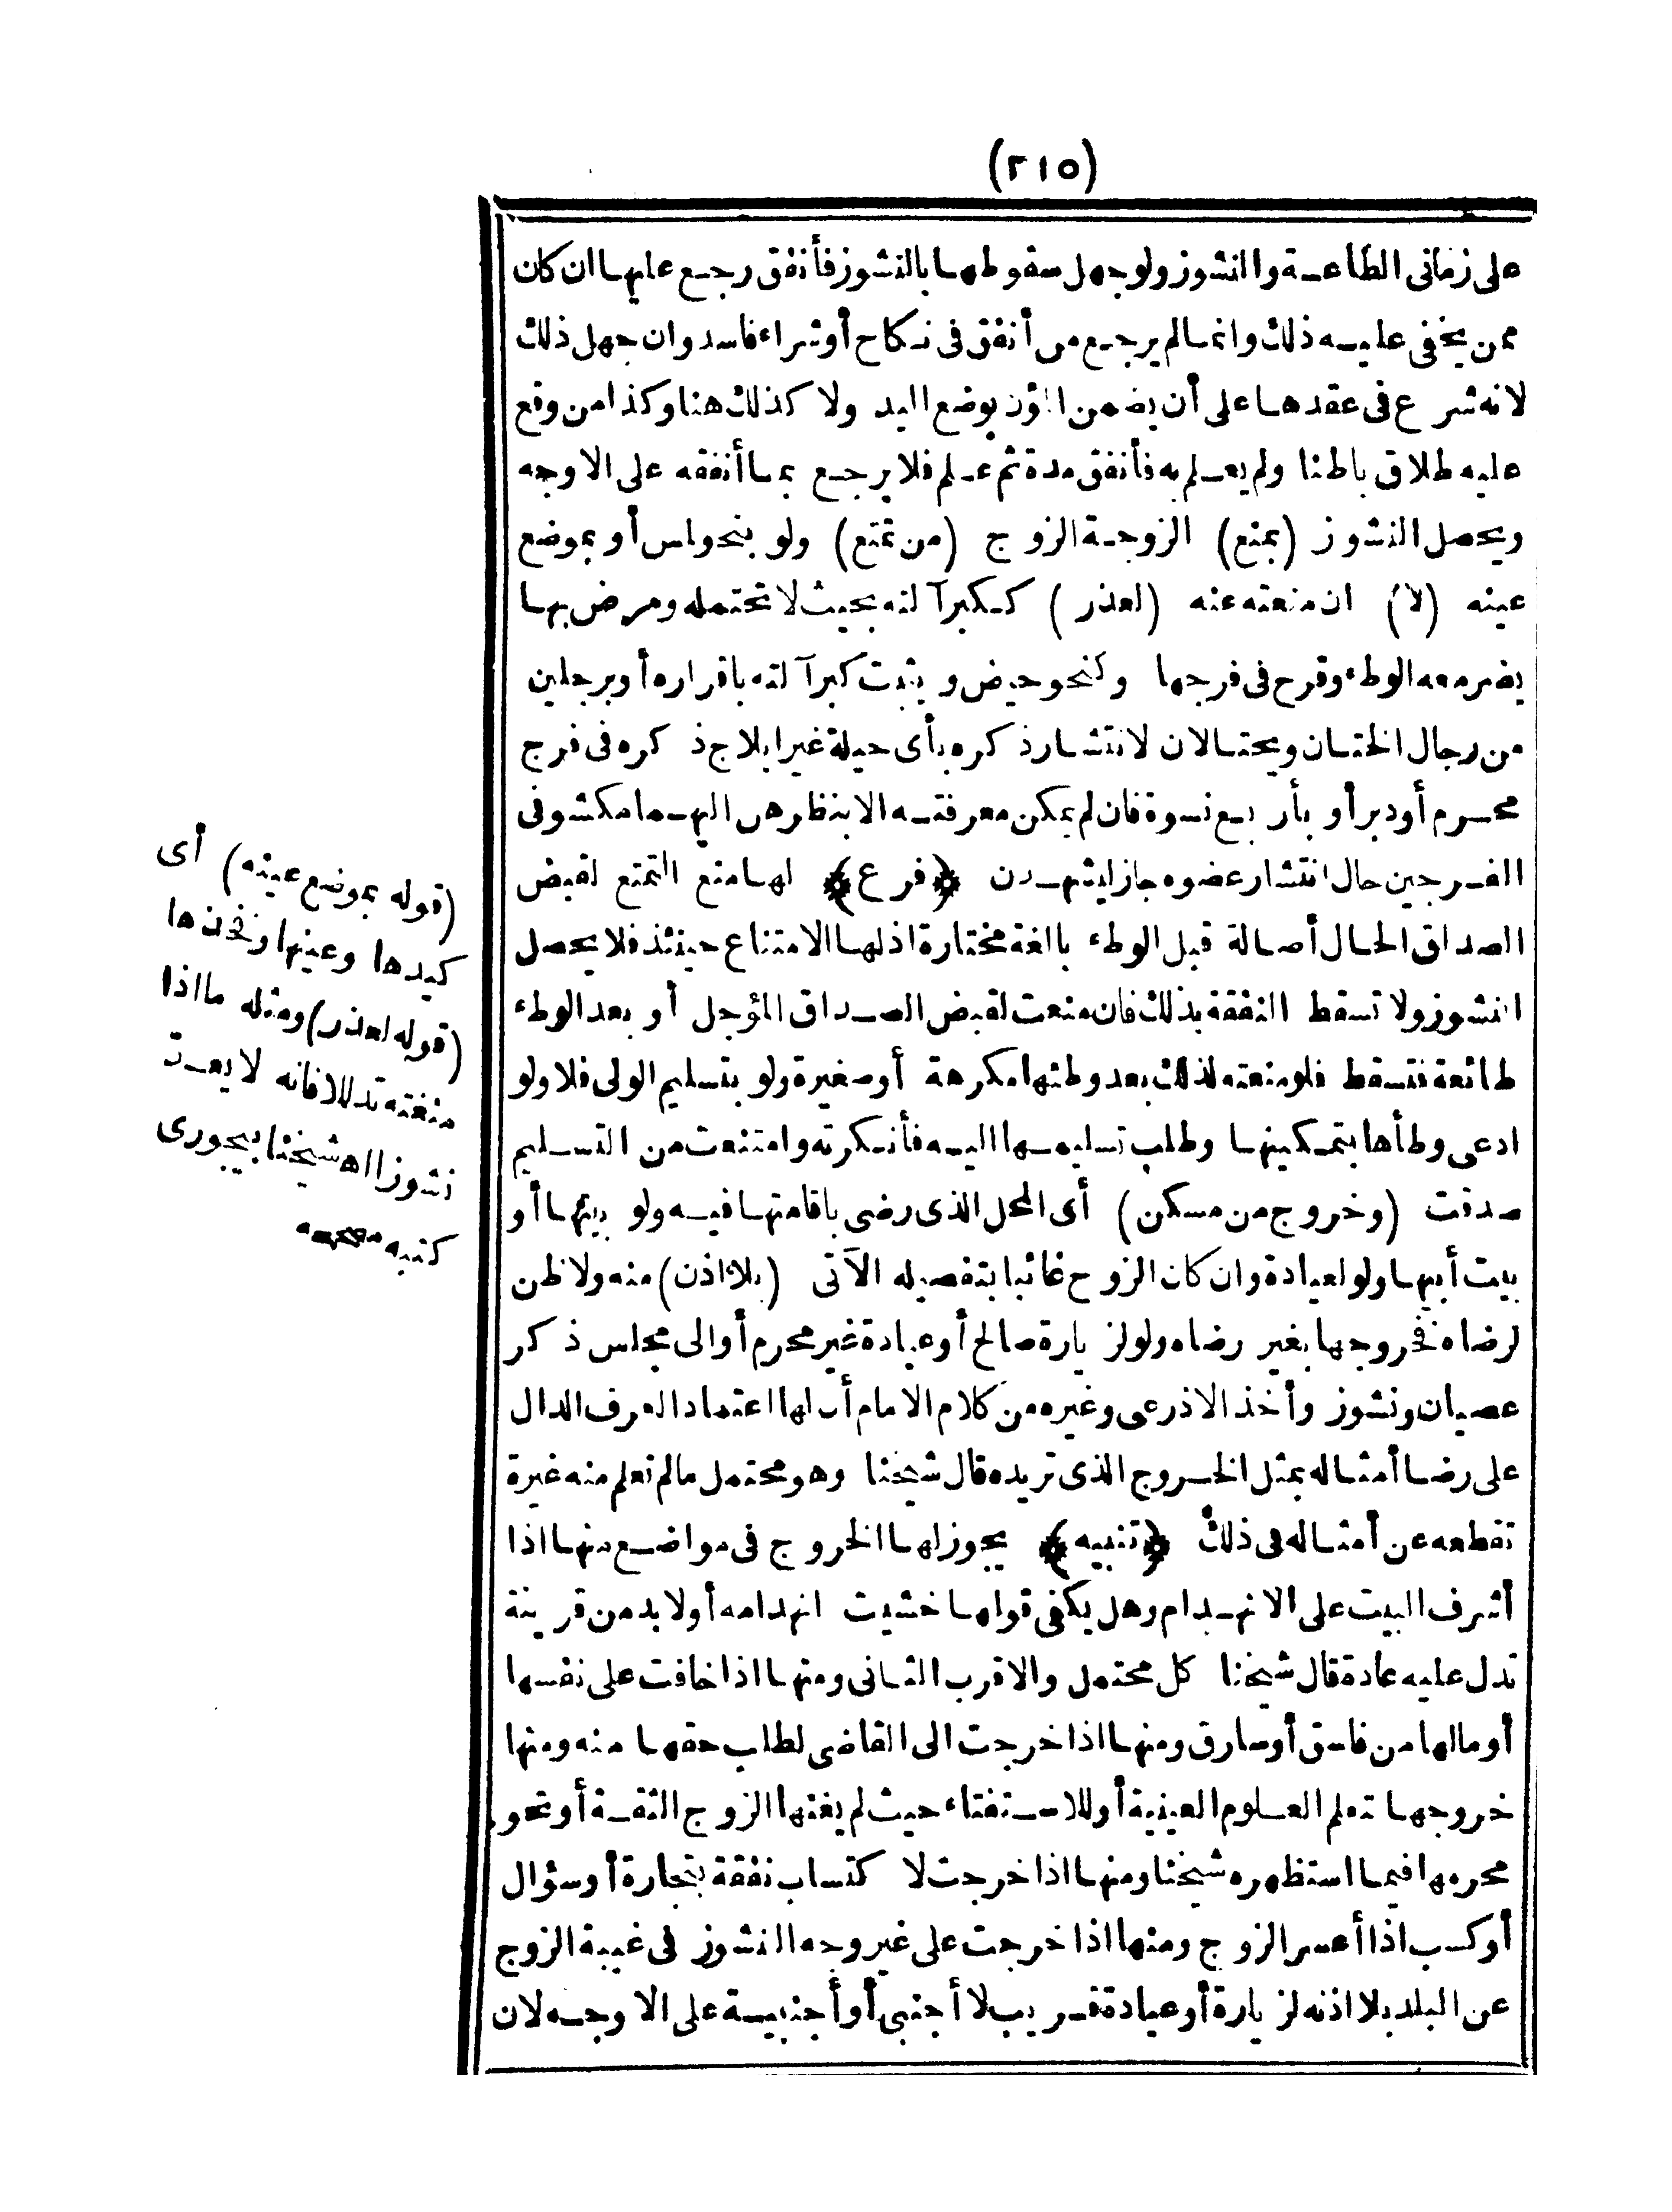 (٢١٥)
على زمانى الطاعة والنشوز ولو جهل سقوطها بالنشوز فأنفق رجع عليها ان كان
ممن يخفى عليه ذلك وانما لم يرجع من أنفق فى نكاح أو شراء فاسد وان جهل ذلك
لانه شرع فى عقدها على أن يضمن المؤن بوضع اليد ولا كذلك هنا وكذا من وقع
عليه طلاق باطنا ولم يعلم به فأنفق مدة ثم علم فلا يرجع بما أنفقه على الاوجه
ويحصل النشوز (بمنع) الزوجة الزوج (من تمتع) ولو بنحو لمس أو بموضع
عينه (لا) ان منعته عنه (لعذر) ككبر آلته بحيث لا تحتمله ومرض بها
يضر معه الوطء وقرح فى فرجها وكنحو حيض ويثبت كبر آلته باقراره أو برجلين
من رجال الختان ويحتالان لانتشار ذكره بأى حيلة غير ايلاج ذكره فى فرج
محرم أو دبر أو بأربع نسوة فان لم يمكن معرفته الا بنظرهن اليهما مكشوفى
الفرجين حال انتشار عضوه جاز ليشهدن ﴿فرع﴾ لها منع التمتع لقبض
الصداق الحال أصالة قبل الوطء بالغة مختارة اذ لها الامتناع حينئذ فلا يحصل
النشوز ولا تسقط النفقة بذلك فان منعت لقبض الصداق المؤجل أو بعد الوطء
طائعة فتسقط فلو منعته لذلك بعد وطئها مكرهة أو صغيرة ولو بتسليم الولى فلا ولو
ادعى وطأها بتمكينها وطلب تسليمها اليه فأنكرته وامتنعت من التسليم
صدقت (وخروج من مسكن) أى المحل الذى رضى باقامتها فيه ولو بيتها أو
بيت أبيها ولو لعيادة وان كان الزوج غائبا بتفصيله الآتى (بلا اذن) منه ولا ظن
لرضاه فخروجها بغير رضاه ولو لزيارة صالح أو عيادة غير محرم أو الى مجلس ذكر
عصيان ونشوز وأخذ الاذرعى وغيره من كلام الامام أن لها اعتماد العرف الدال
على رضا أمثاله بمثل الخروج الذى تريده قال شيخنا وهو محتمل مالم تعلم منه غيرة
تقطعه عن أمثاله فى ذلك ﴿تنبيه﴾ يجوز لها الخروج فى مواضع منها اذا
أشرف البيت على الانهدام وهل يكفى قولها خشيت انهدامه أو لا بد من قرينة
تدل عليه عادة قال شيخنا كل محتمل والاقرب الثانى ومنها اذا خافت على نفسها
أو مالها من فاسق أو سارق ومنها اذا خرجت الى القاضى لطلب حقها منه ومنها
خروجها تعلم العلوم العينية أو للاستفتاء حيث لم يغنها الزوج الثقة أو نحو
محرمها فيما استظهره شيخنا ومنها اذا خرجت لاكتساب نفقة بتجارة أو سؤال
أو كسب اذا أعسر الزوج ومنها اذا خرجت على غير وجه النشوز فى غيبة الزوج
عن البلد بلا اذنه لزيارة أو عيادة قريب لا أجنبى أو أجنبية على الاوجه لان
(قوله بموضع عينه) أى
كيدها وعينها وفخذها
(قوله لعذر) ومثله ما اذا
منعته تدللا فانه لا يعد
نشوزا اه شيخنا بيجورى
كتبه مصححه